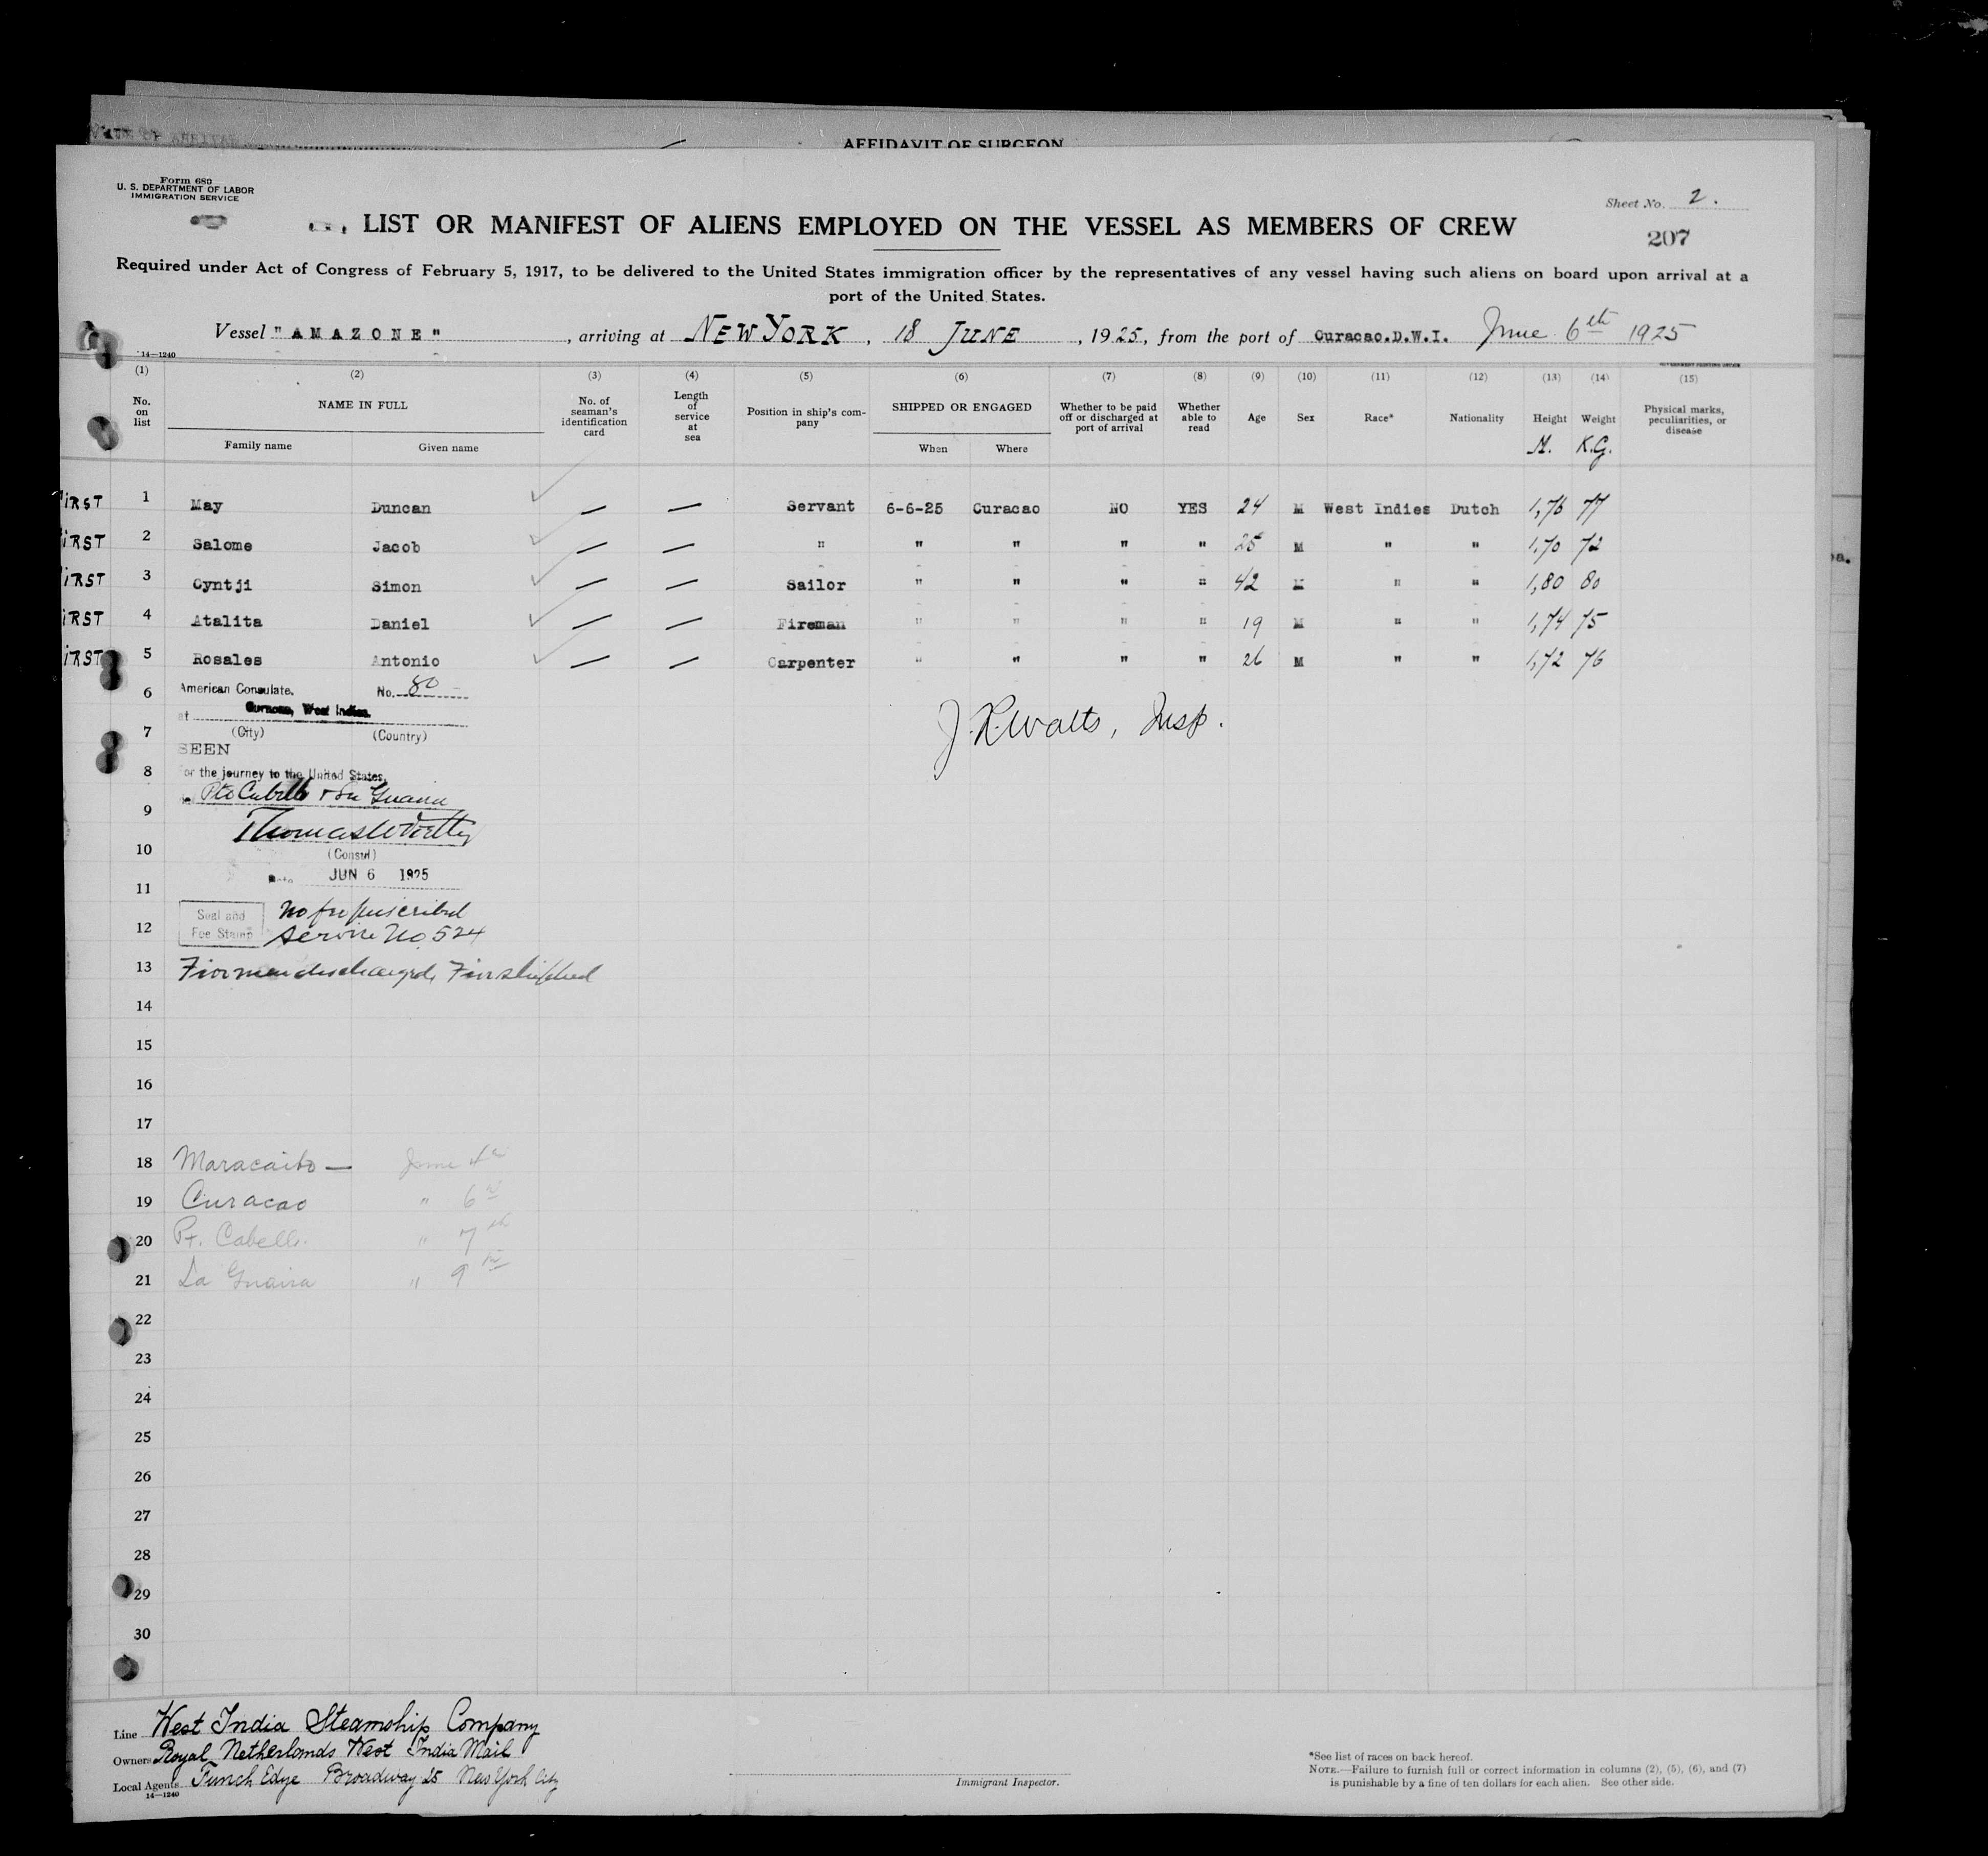 AFFIDAVIT OF SURGEON
Form 680
U. S. DEPARTMENT OF LABOR
IMMIGRATION SERVICE
Sheet No. 2.
LIST OR MANIFEST OF ALIENS EMPLOYED ON THE VESSEL AS MEMBERS OF CREW
207
Required under Act of Congress of February 5, 1917, to be delivered to the United States immigration officer by the representatives of any vessel having such aliens on board upon arrival at a
port of the United States.
Vessel "AMAZONE", arriving at NEW YORK, 18 JUNE, 1925, from the port of Curacao.D.W.I. June 6th 1925
14—1240
(1) (2) (3) (4) (5) (6) (7) (8) (9) (10) (11) (12) (13) (14) (15)
No. on list NAME IN FULL No. of seaman's identification card Length of service at sea Position in ship's company SHIPPED OR ENGAGED Whether to be paid off or discharged at port of arrival Whether able to read Age Sex Race* Nationality Height Weight Physical marks, peculiarities, or disease
Family name Given name When Where M. K.G.
FIRST 1 May Duncan — — Servant 6-6-25 Curacao NO YES 24 M West Indies Dutch 1,76 77
FIRST 2 Salome Jacob — — " " " " " 25 M " " 1,70 72
FIRST 3 Cyntji Simon — — Sailor " " " " 42 M " " 1,80 80
FIRST 4 Atalita Daniel — — Fireman " " " " 19 M " " 1,74 75
FIRST 5 Rosales Antonio — — Carpenter " " " " 26 M " " 1,72 76
6 American Consulate. No. 80
at Curacao, West Indies.
7 (City) (Country)
SEEN
J. R. Walts, Insp.
8 for the journey to the United States,
Pto Cabello & La Guaira
9
10 (Consul)
Date JUN 6 1925
11
Seal and
Fee Stamp
No fee prescribed
12 Service No. 524
13 Five men discharged, Five shipped
14
15
16
17
18 Maracaibo — June 4th
19 Curacao " 6th
20 Pt. Cabello " 7th
21 La Guaira " 9th
22
23
24
25
26
27
28
29
30
Line West India Steamship Company
Owners Royal Netherlands West India Mail
Local Agents Funch Edye Broadway 25 New York City
14—1240
Immigrant Inspector.
*See list of races on back hereof.
NOTE.—Failure to furnish full or correct information in columns (2), (5), (6), and (7)
is punishable by a fine of ten dollars for each alien. See other side.